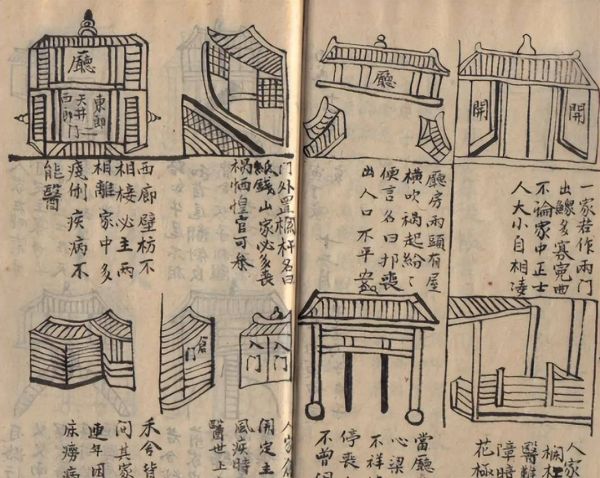 開
開
一家若作兩门
出鰥多寡寃曲
不論家中正士
人大小自相凌
廳
廳房兩頭有屋
横吹祸起紛〻
便言名曰邦喪
出人口不平
人家
欄
醫難
障時
花極
當廳
心梁
不祥
停喪
不曾
门外置欄杆名曰
紙錢山家必多喪
祸恓惶官可參
廳
東郎
天井门
西郎
西廊壁枋不
相接必主兩
相離家中多
疾病不
能醫
入门
入门
倉门
人家倉
定主
風疾時
醫世上
禾仓皆
问其家
連年因
癆病